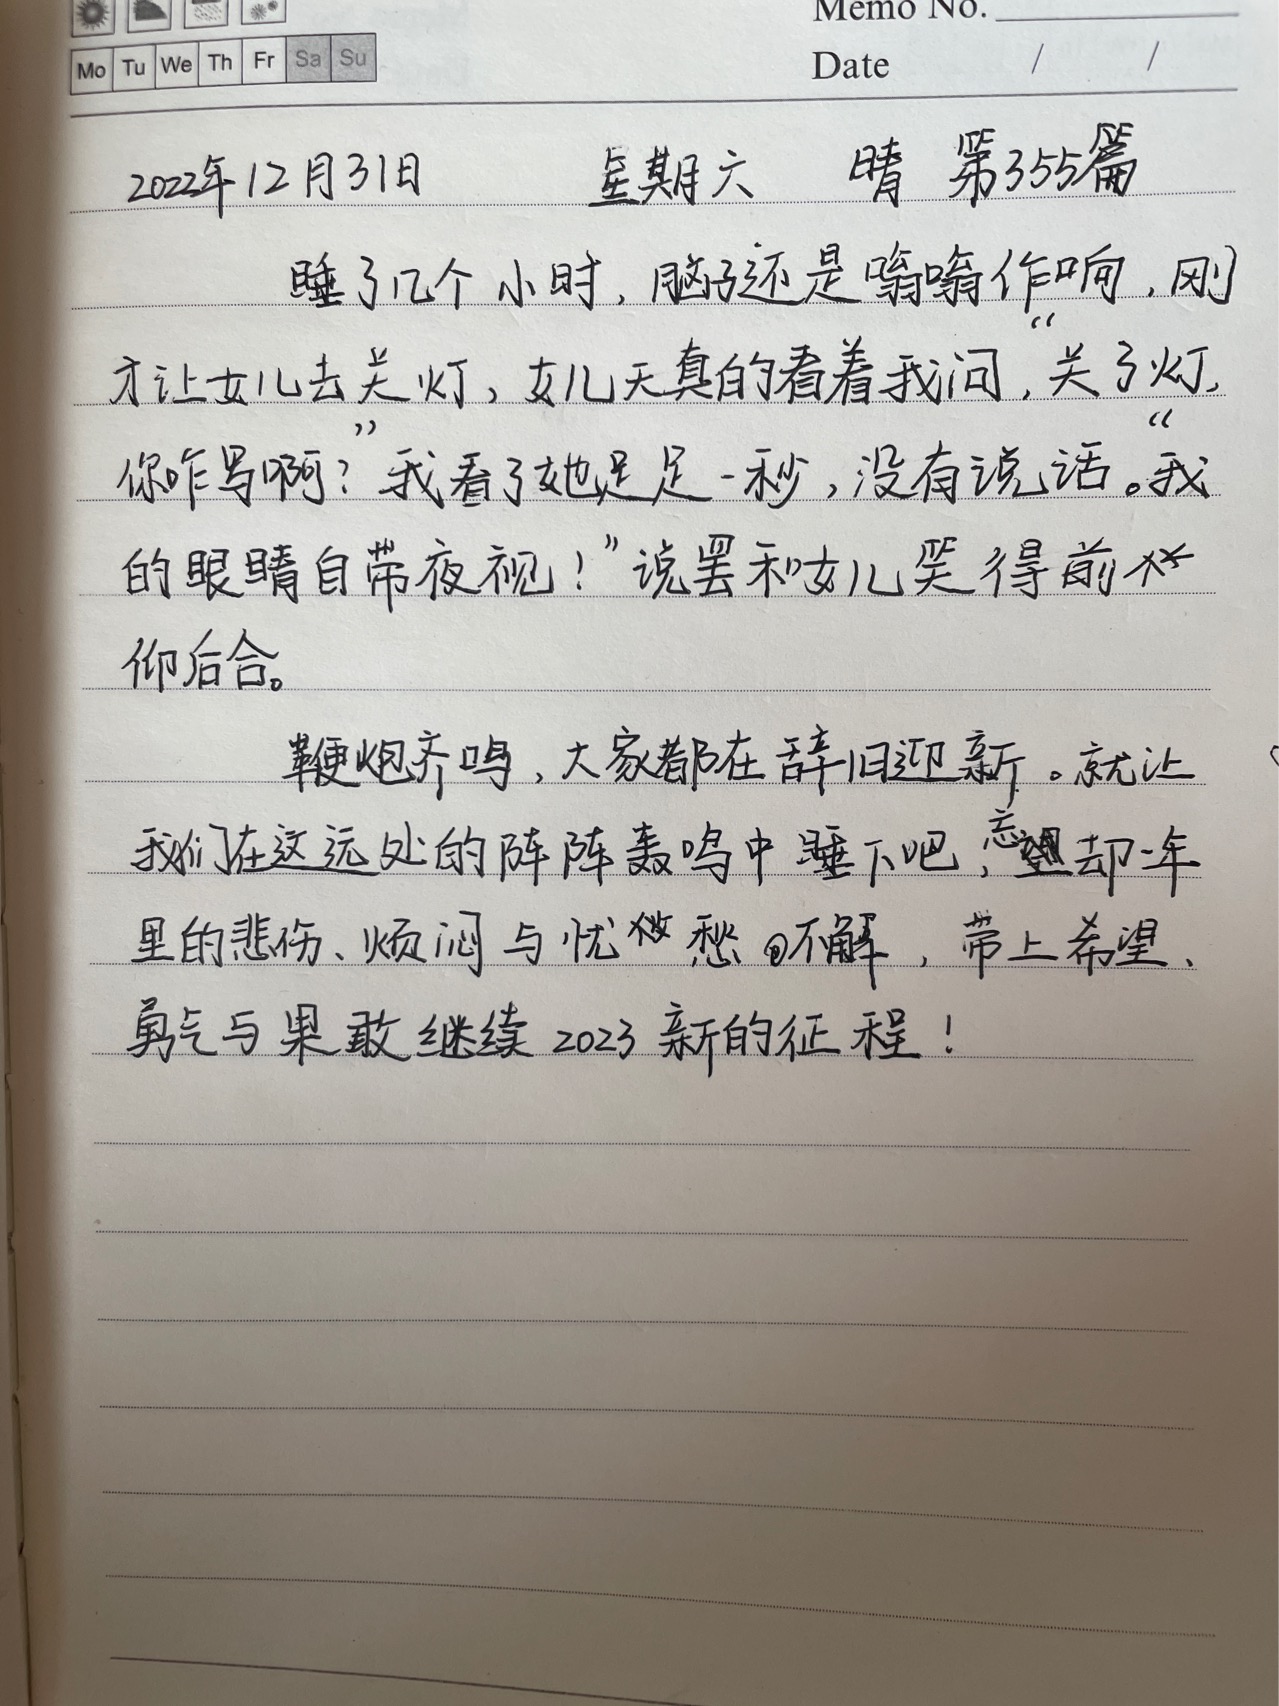 Memo No.
Mo Tu We Th Fr Sa Su
Date / /
2022年12月31日 星期六 晴 第355篇
睡了几个小时，脑子还是嗡嗡作响，刚
才让女儿去关灯，女儿天真的看着我问，“关了灯，
你咋写啊？”我看了她足足一秒，没有说话。“我
的眼睛自带夜视！”说罢和女儿笑得前
仰后合。
鞭炮齐鸣，大家都在辞旧迎新。就让
我们在这远处的阵阵轰鸣中睡下吧，忘却一年
里的悲伤、烦闷与忧愁不解，带上希望、
勇气与果敢继续2023新的征程！